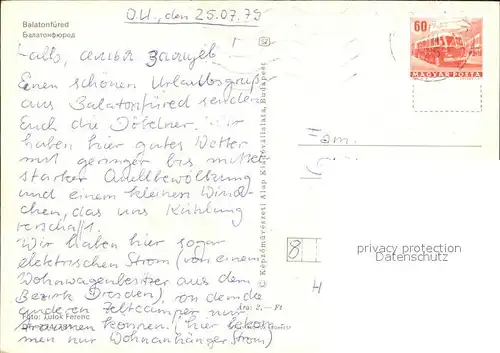 O.U., den 25.07.79
Balatonfüred
Балатонфюред
Hallo, семья
Einen schönen Urlaubsgruß
aus Balatonfüred senden
Euch die Döbelner. Wir
haben hier gutes Wetter
mit geringer bis mittel
starker Quellbewölkung
und einem kleinen Wind-
chen, das uns Kühlung
verschafft.
Wir haben hier sogar
elektrischen Strom (von einem
Wohnwagenbesitzer aus dem
Bezirk Dresden), von dem die
anderen Zeltcamper nur
träumen können. (hier bekom
men nur Wohnanhänger Strom)
Foto: Tulok Ferenc
Ára: 2,— Ft
© Képzőművészeti Alap Kiadóvállalata, Budapest
60
MAGYAR POSTA
Fam.
8
H
privacy protection
Datenschutz